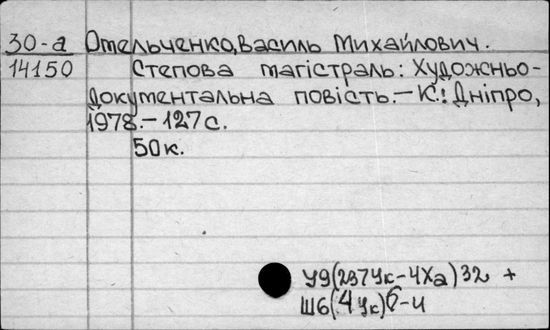 30-а Отельченко, Василь Михайлович.
14150 Степова магістраль: Художньо-
документальна повість.– К.: Дніпро,
1978.– 127 с.
50 к.
У9(2974к–4Ха)32 +
Ш6(4Ук)6–4